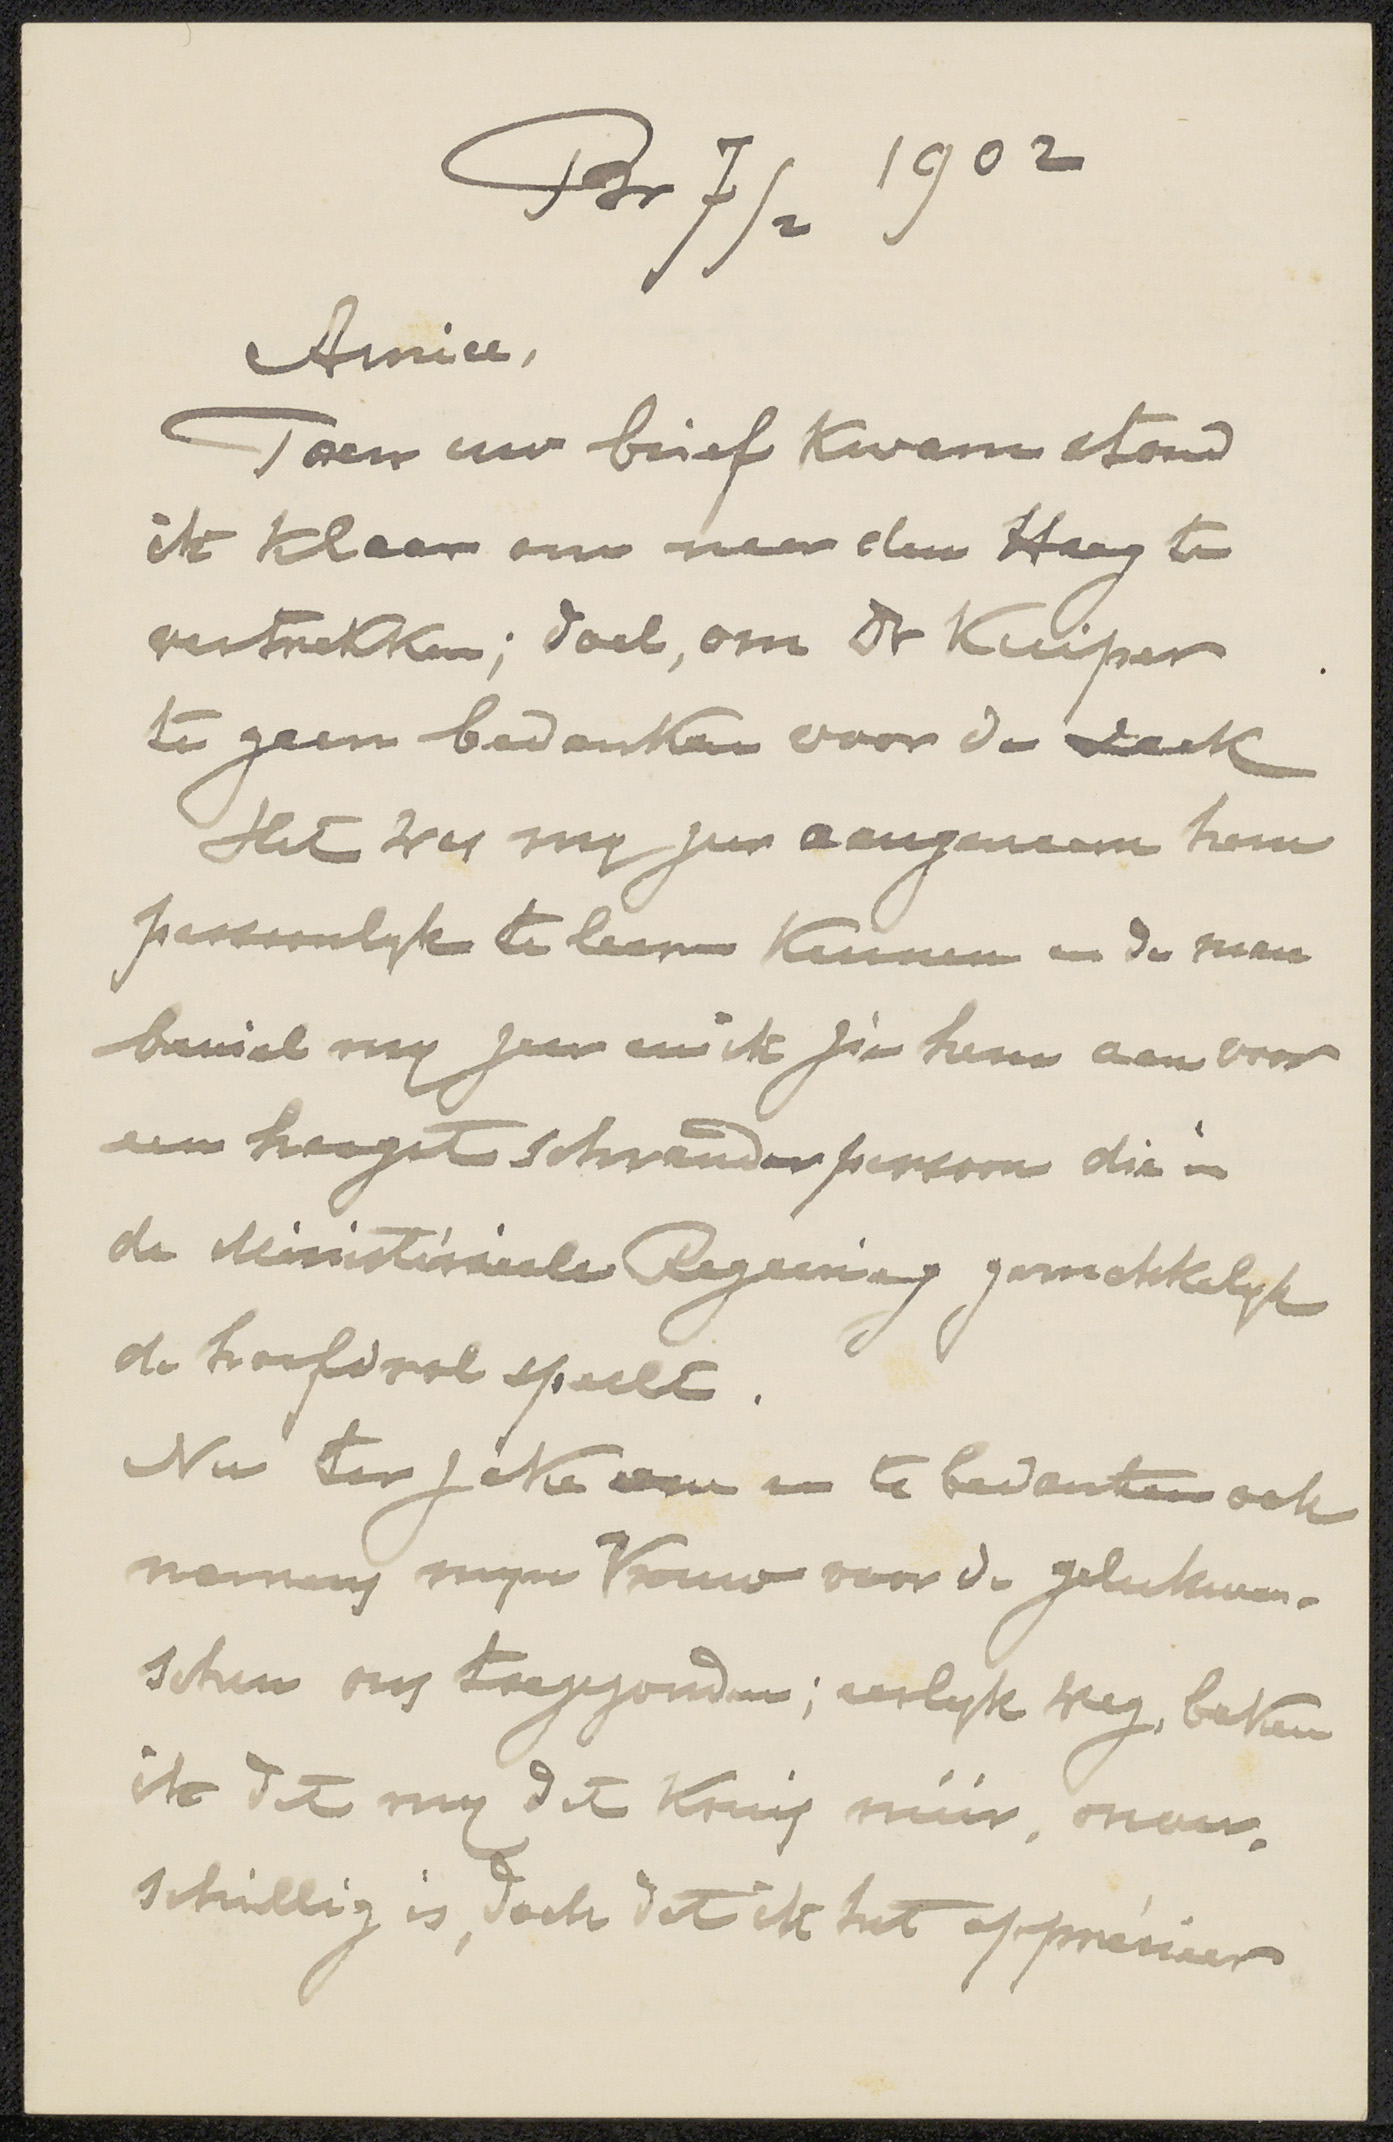 Br 7/2 1902
Amice,
Toen uw brief kwam stond
ik klaar om naar den Haag te
vertrekken; doel, om Dr Kuiper
te gaan bedanken voor de
Het was my zeer aangenaam hem
persoonlyk te leeren kennen en de man
beviel my zeer en ik zie hem aan voor
een hoogst schrander persoon die in
de Ministerieele Regeering gemakkelyk
de hoofdrol speelt.
Nu ter zake om U te bedanken ook
namens myn Vrouw voor de gelukwen-
schen ons toegezonden; eerlyk weg, beken
ik dat my dit Kruis niet, onver-
schillig is, doch dat ik het apprécieer